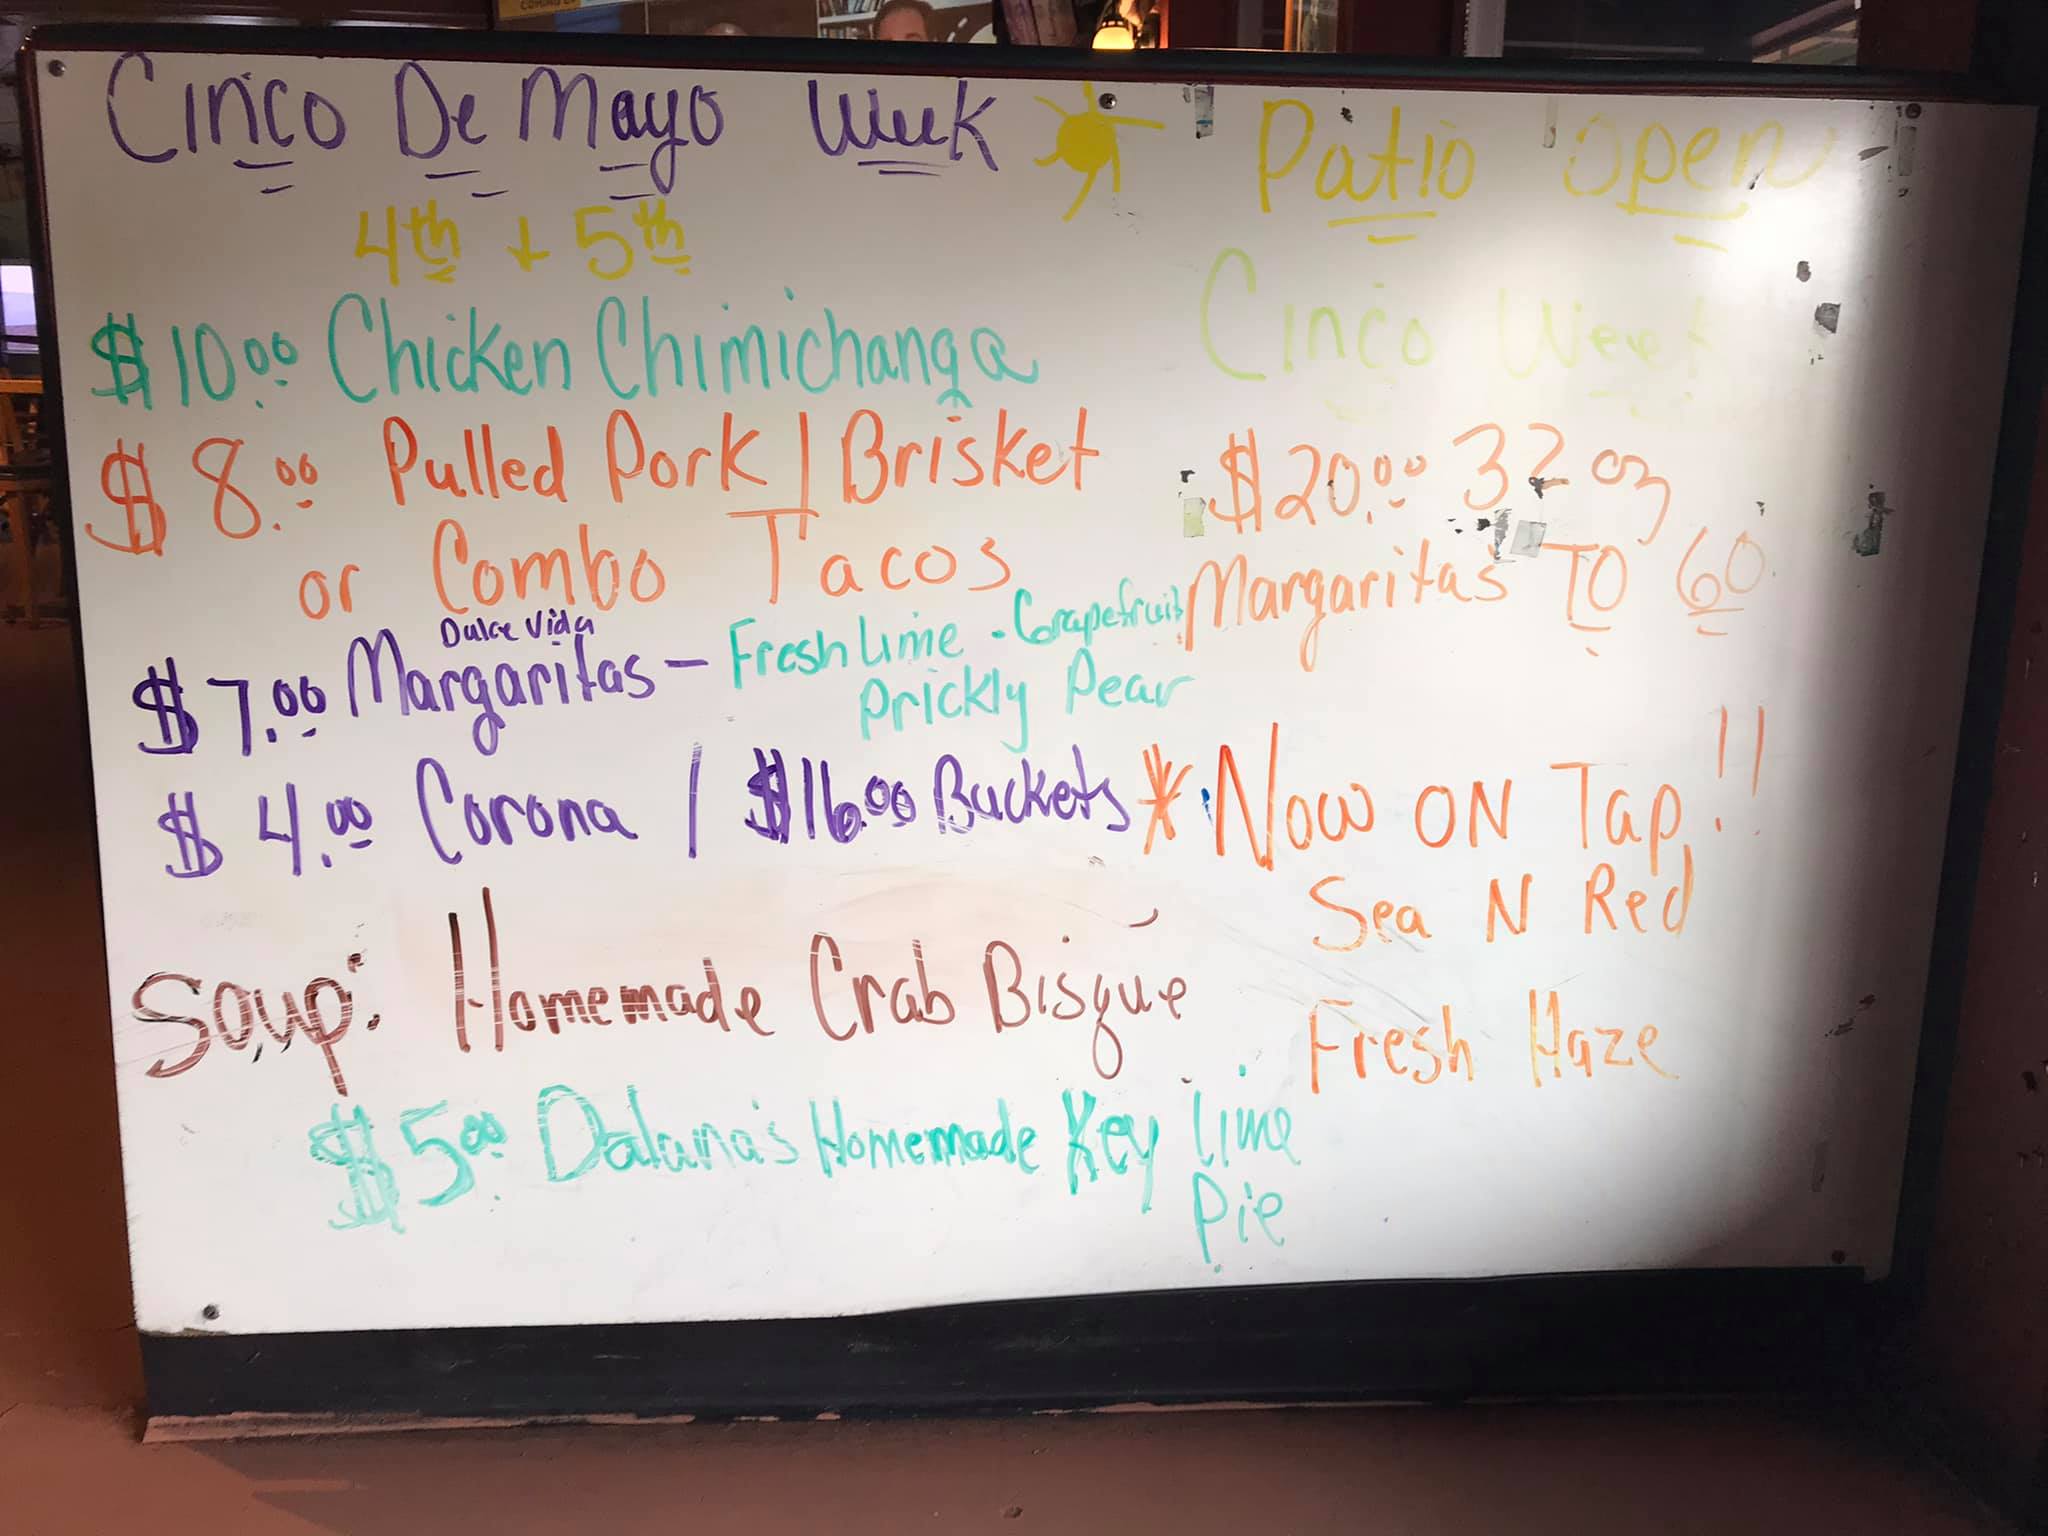 Cinco De Mayo Week
4th + 5th
$10.00 Chicken Chimichanga
$8.00 Pulled Pork / Brisket
or Combo Tacos
Dulce Vida
$7.00 Margaritas - Fresh Lime - Grapefruit
Prickly Pear
$4.00 Corona / $16.00 Buckets
Soup: Homemade Crab Bisque
$5.00 Dalana's Homemade Key Lime
Pie
Patio Open
Cinco Week
$20.00 32 oz
Margaritas TO GO
* Now ON Tap!!
Sea N Red
Fresh Haze